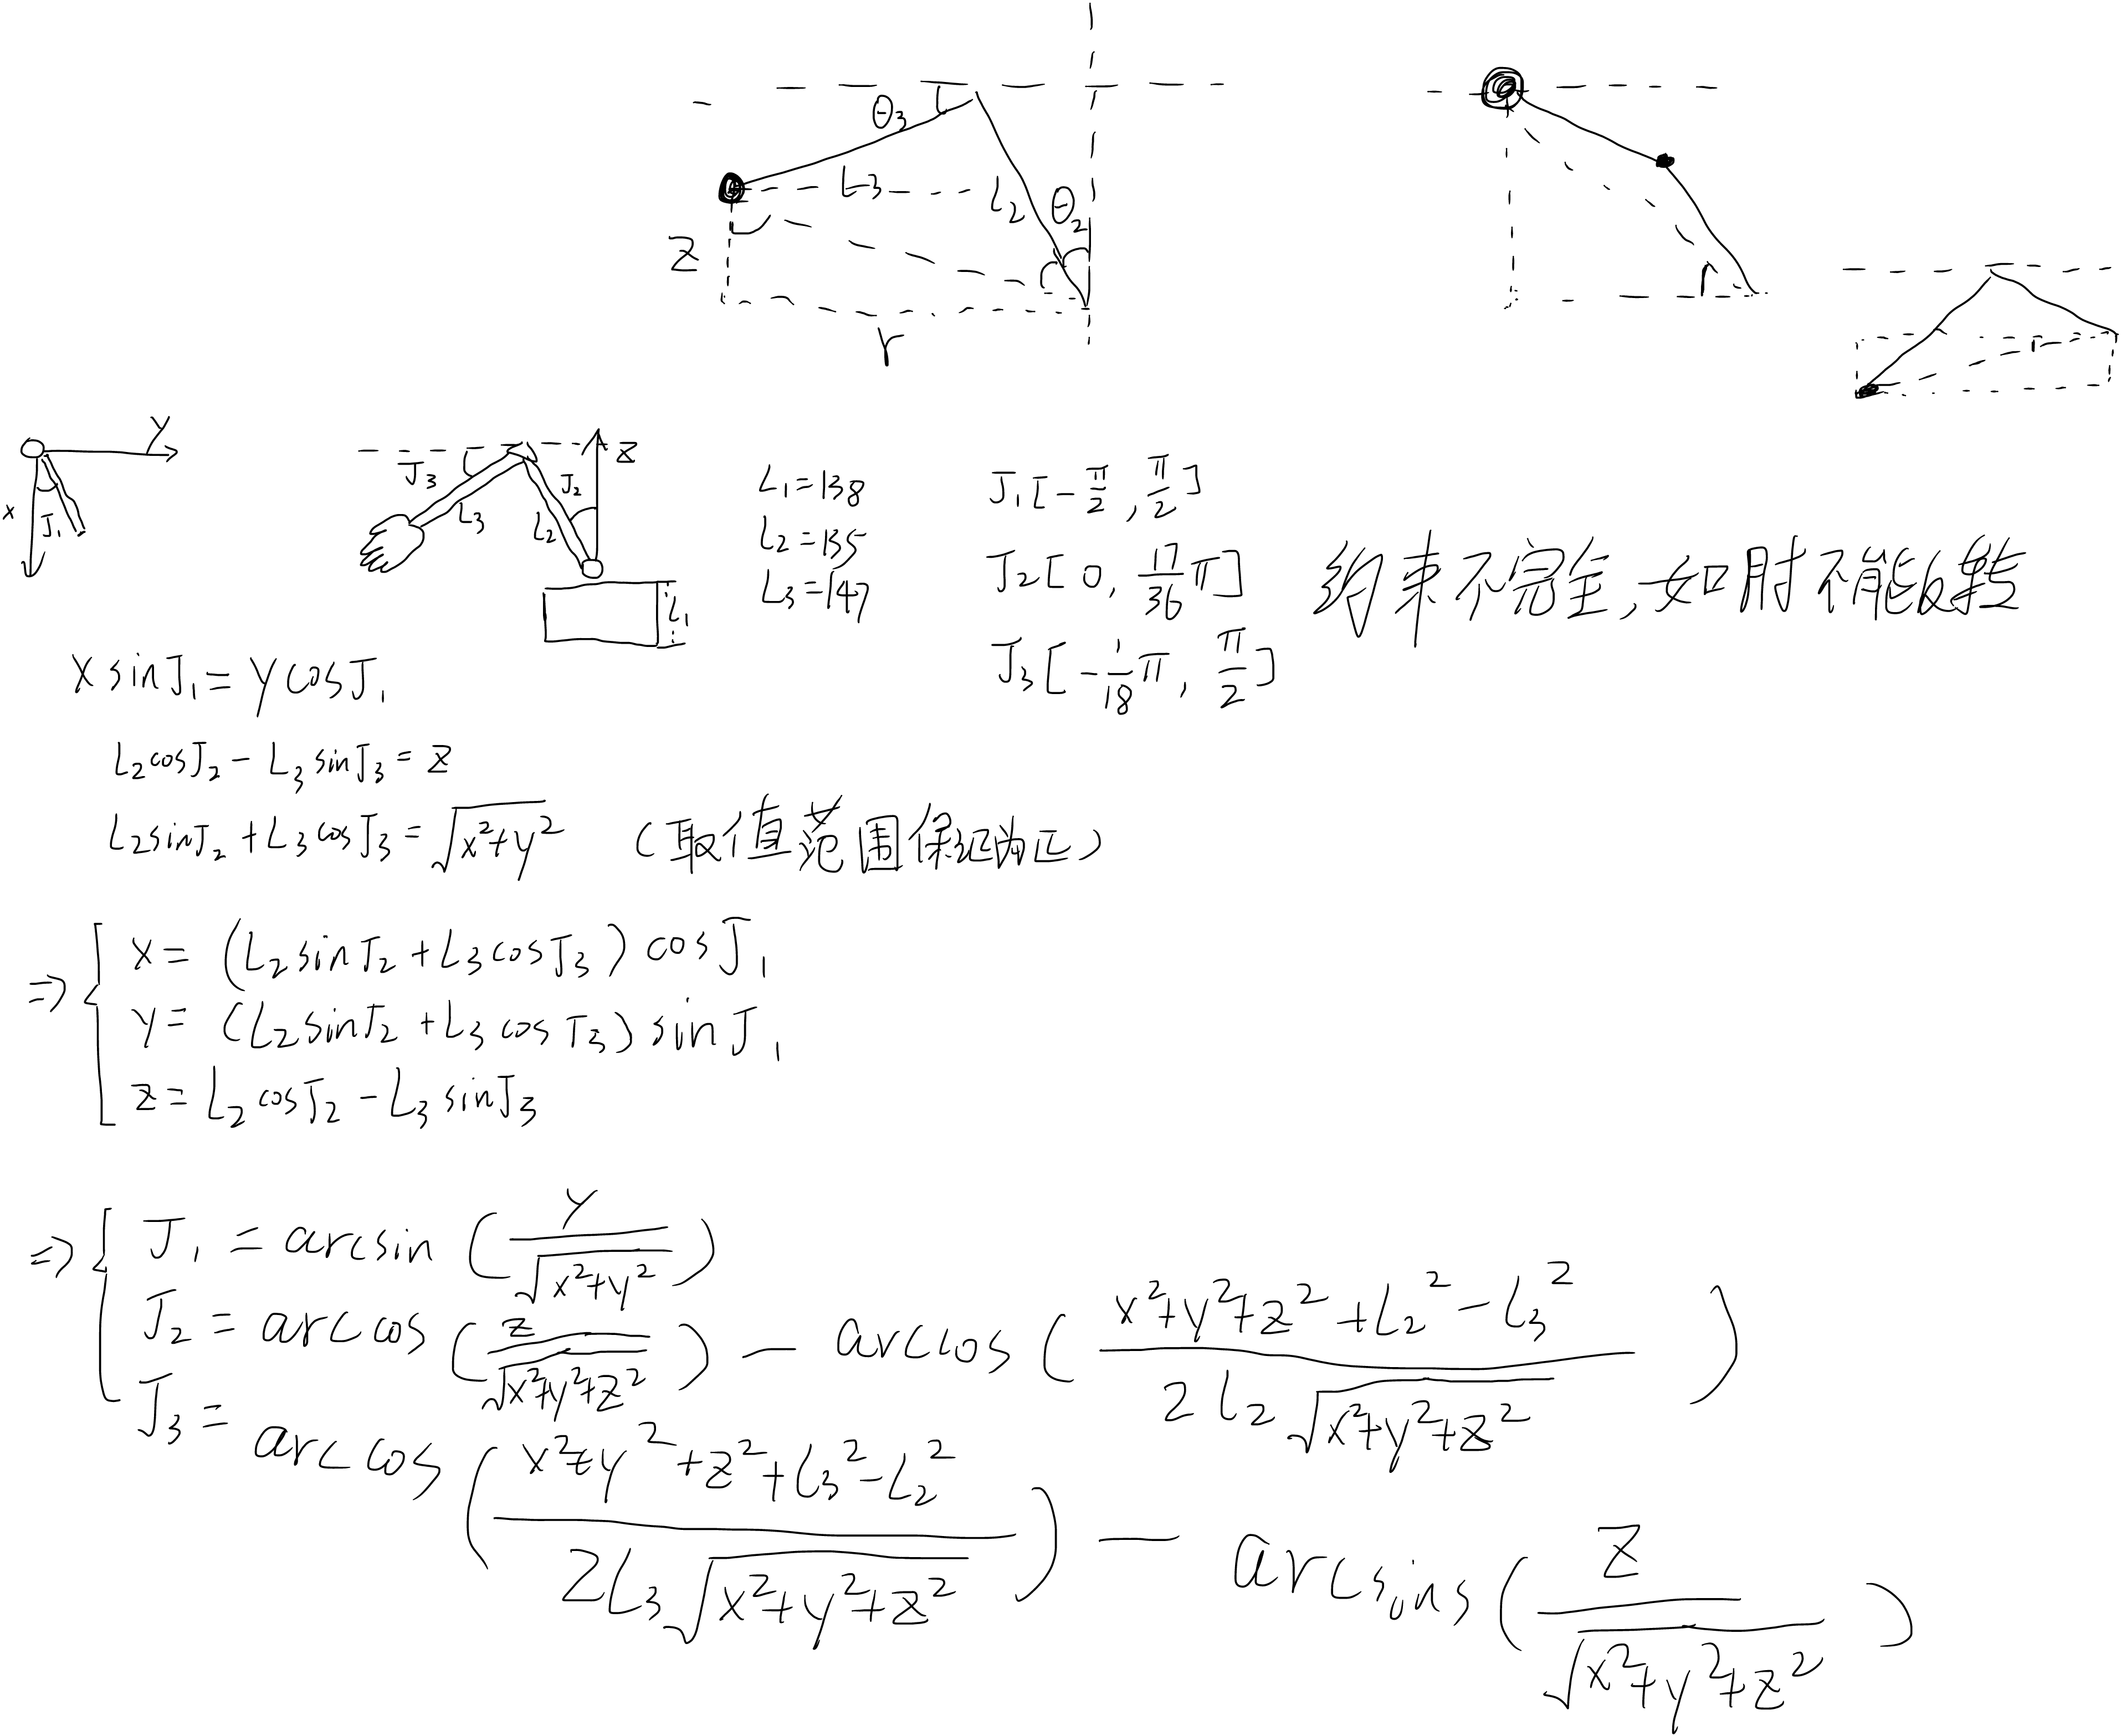 θ₃
L₃
L₂
θ₂
Z
r
Y
x
J₁
J₃
L₃
L₂
J₂
z
L₁
L₁=138
L₂=135
L₃=147
J₁[-π/2, π/2]
J₂[0, 17/36 π]
J₃[-1/18 π, π/2]
约束不完全,如肘不能反转
x sinJ₁ = y cosJ₁
L₂cosJ₂ - L₃sinJ₃ = z
L₂sinJ₂ + L₃cosJ₃ = √(x²+y²) (取值范围保证为正)
⇒ { x = (L₂sinJ₂ + L₃cosJ₃) cosJ₁
y = (L₂sinJ₂ + L₃cosJ₃) sinJ₁
z = L₂cosJ₂ - L₃sinJ₃
⇒ { J₁ = arcsin (y/√(x²+y²))
J₂ = arccos (z/√(x²+y²+z²)) - arccos ((x²+y²+z²+L₂²-L₃²)/(2L₂√(x²+y²+z²)))
J₃ = arccos ((x²+y²+z²+L₃²-L₂²)/(2L₃√(x²+y²+z²))) - arcsins (z/√(x²+y²+z²))